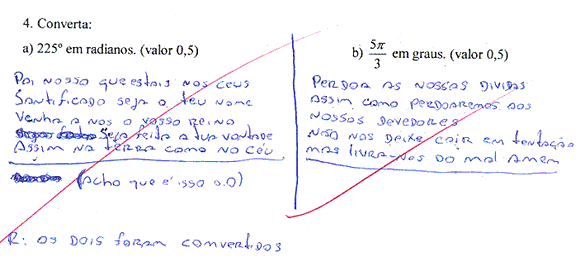 4. Converta:
a) 225º em radianos. (valor 0,5)
Pai nosso que estais nos ceus
Santificado seja o teu nome
Venha a nos o vosso reino
Seja feita a tua vontade
Assim na terra como no céu
(Acho que é isso o.o)
b) 5π/3 em graus. (valor 0,5)
Perdoa as nossas dividas
Assim como perdoaremos aos
nossos devedores
Não nos deixe cair em tentação
mas livra-nos do mal amem
R: os dois foram convertidos